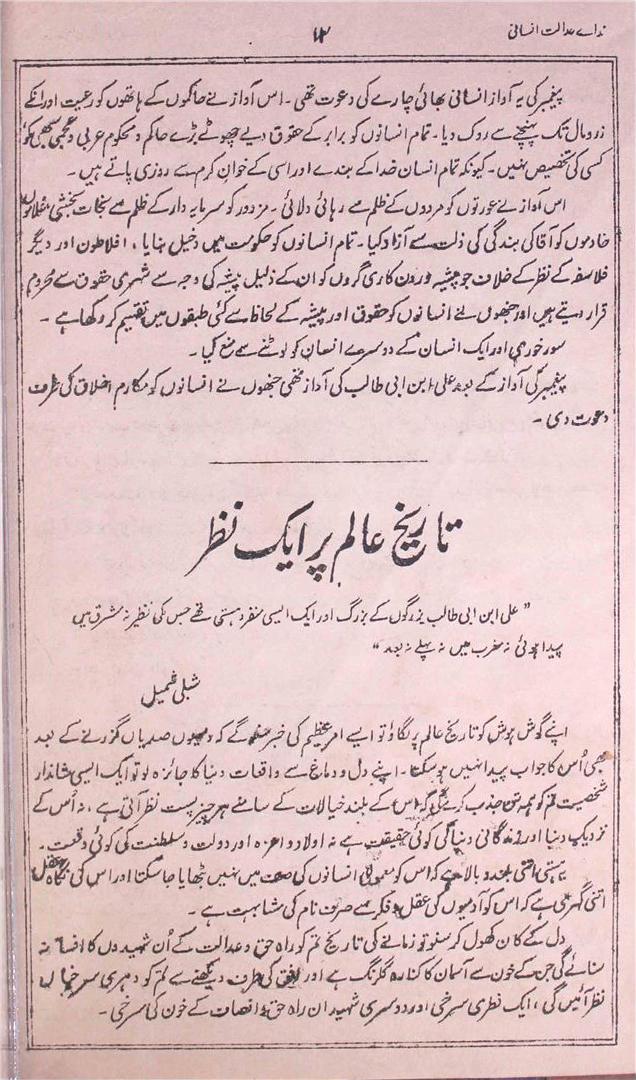 ندائے عدالت انسانی
۱۳
پیغمبر کی یہ آواز انسانی بھائی چارے کی دعوت تھی۔ اس آواز نے حاکموں کے ہاتھوں کو رعیت اور انکے
زر و مال تک پہنچنے سے روک دیا۔ تمام انسانوں کو برابر کے حقوق دیے چھوٹے بڑے حاکم و محکوم عربی و عجمی سبھی کو
کسی کی تخصیص نہیں۔ کیونکہ تمام انسان خدا کے بندے اور اسی کے خوان کرم سے روزی پاتے ہیں۔
اس آواز نے عورتوں کو مردوں کے ظلم سے رہائی دلائی۔ مزدور کو سرمایہ دار کے ظلم سے نجات بخشی
خادموں کو آقا کی بندگی کی ذلت سے آزاد کیا۔ تمام انسانوں کو حکومت میں دخیل بنایا، افلاطون اور دیگر
فلاسفہ کے نظر کے خلاف جو پیشہ وروں کاریگروں کو ان کے ذلیل پیشہ کی وجہ سے شہری حقوق سے محروم
قرار دیتے ہیں اور جنھوں نے انسانوں کو حقوق اور پیشہ کے لحاظ سے کئی طبقوں میں تقسیم کر رکھا ہے۔
سود خوری اور ایک انسان کے دوسرے انسان کو لوٹنے سے منع کیا۔
پیغمبر کی آواز کے بعد علی ابن ابی طالب کی آواز تھی جنھوں نے انسانوں کو مکارم اخلاق کی طرف
دعوت دی۔
تاریخ عالم پر ایک نظر
” علی ابن ابی طالب بزرگوں کے بزرگ اور ایک ایسی منفرد ہستی تھے جس کی نظیر نہ مشرق میں
پیدا ہوئی نہ مغرب میں نہ پہلے نہ بعد “
شبلی شمیل
اپنے گوش ہوش کو تاریخ عالم پر لگاؤ تو ایسے امر عظیم کی خبر ملے گی کہ دسیوں صدیاں گزرنے کے بعد
بھی اُس کا جواب پیدا نہیں ہو سکتا۔ اپنے دل و دماغ سے واقعات دنیا کا جائزہ لو تو ایک ایسی شاندار
شخصیت تم کو ہمہ تن جذب کرے گی کہ اس کے بلند خیالات کے سامنے ہر چیز پست نظر آتی ہے، نہ اُس کے
نزدیک دنیا اور زندگانی دنیا کی کوئی حقیقت ہے نہ اولاد و اعزہ اور دولت و سلطنت کی کوئی وقعت۔
یہ ہستی اتنی بلند و بالا ہے کہ اس کو معمولی انسانوں کی صف میں نہیں بٹھایا جا سکتا اور اس کی نگاہ عقل
اتنی گہری ہے کہ اس کو آدمیوں کی عقل و فکر سے صرف نام کی مشابہت ہے۔
دل کے کان کھول کر سنو تو زمانے کی تاریخ تم کو راہ حق و عدالت کے اُن شہیدوں کا افسانہ
سنائے گی جن کے خون سے آسمان کا کنارہ گلرنگ ہے اور افق کی طرف دیکھنے سے تم کو دہری سرخیاں
نظر آئیں گی، ایک فطری سرخی اور دوسری شہیدان راہ حق و انصاف کے خون کی سرخی۔